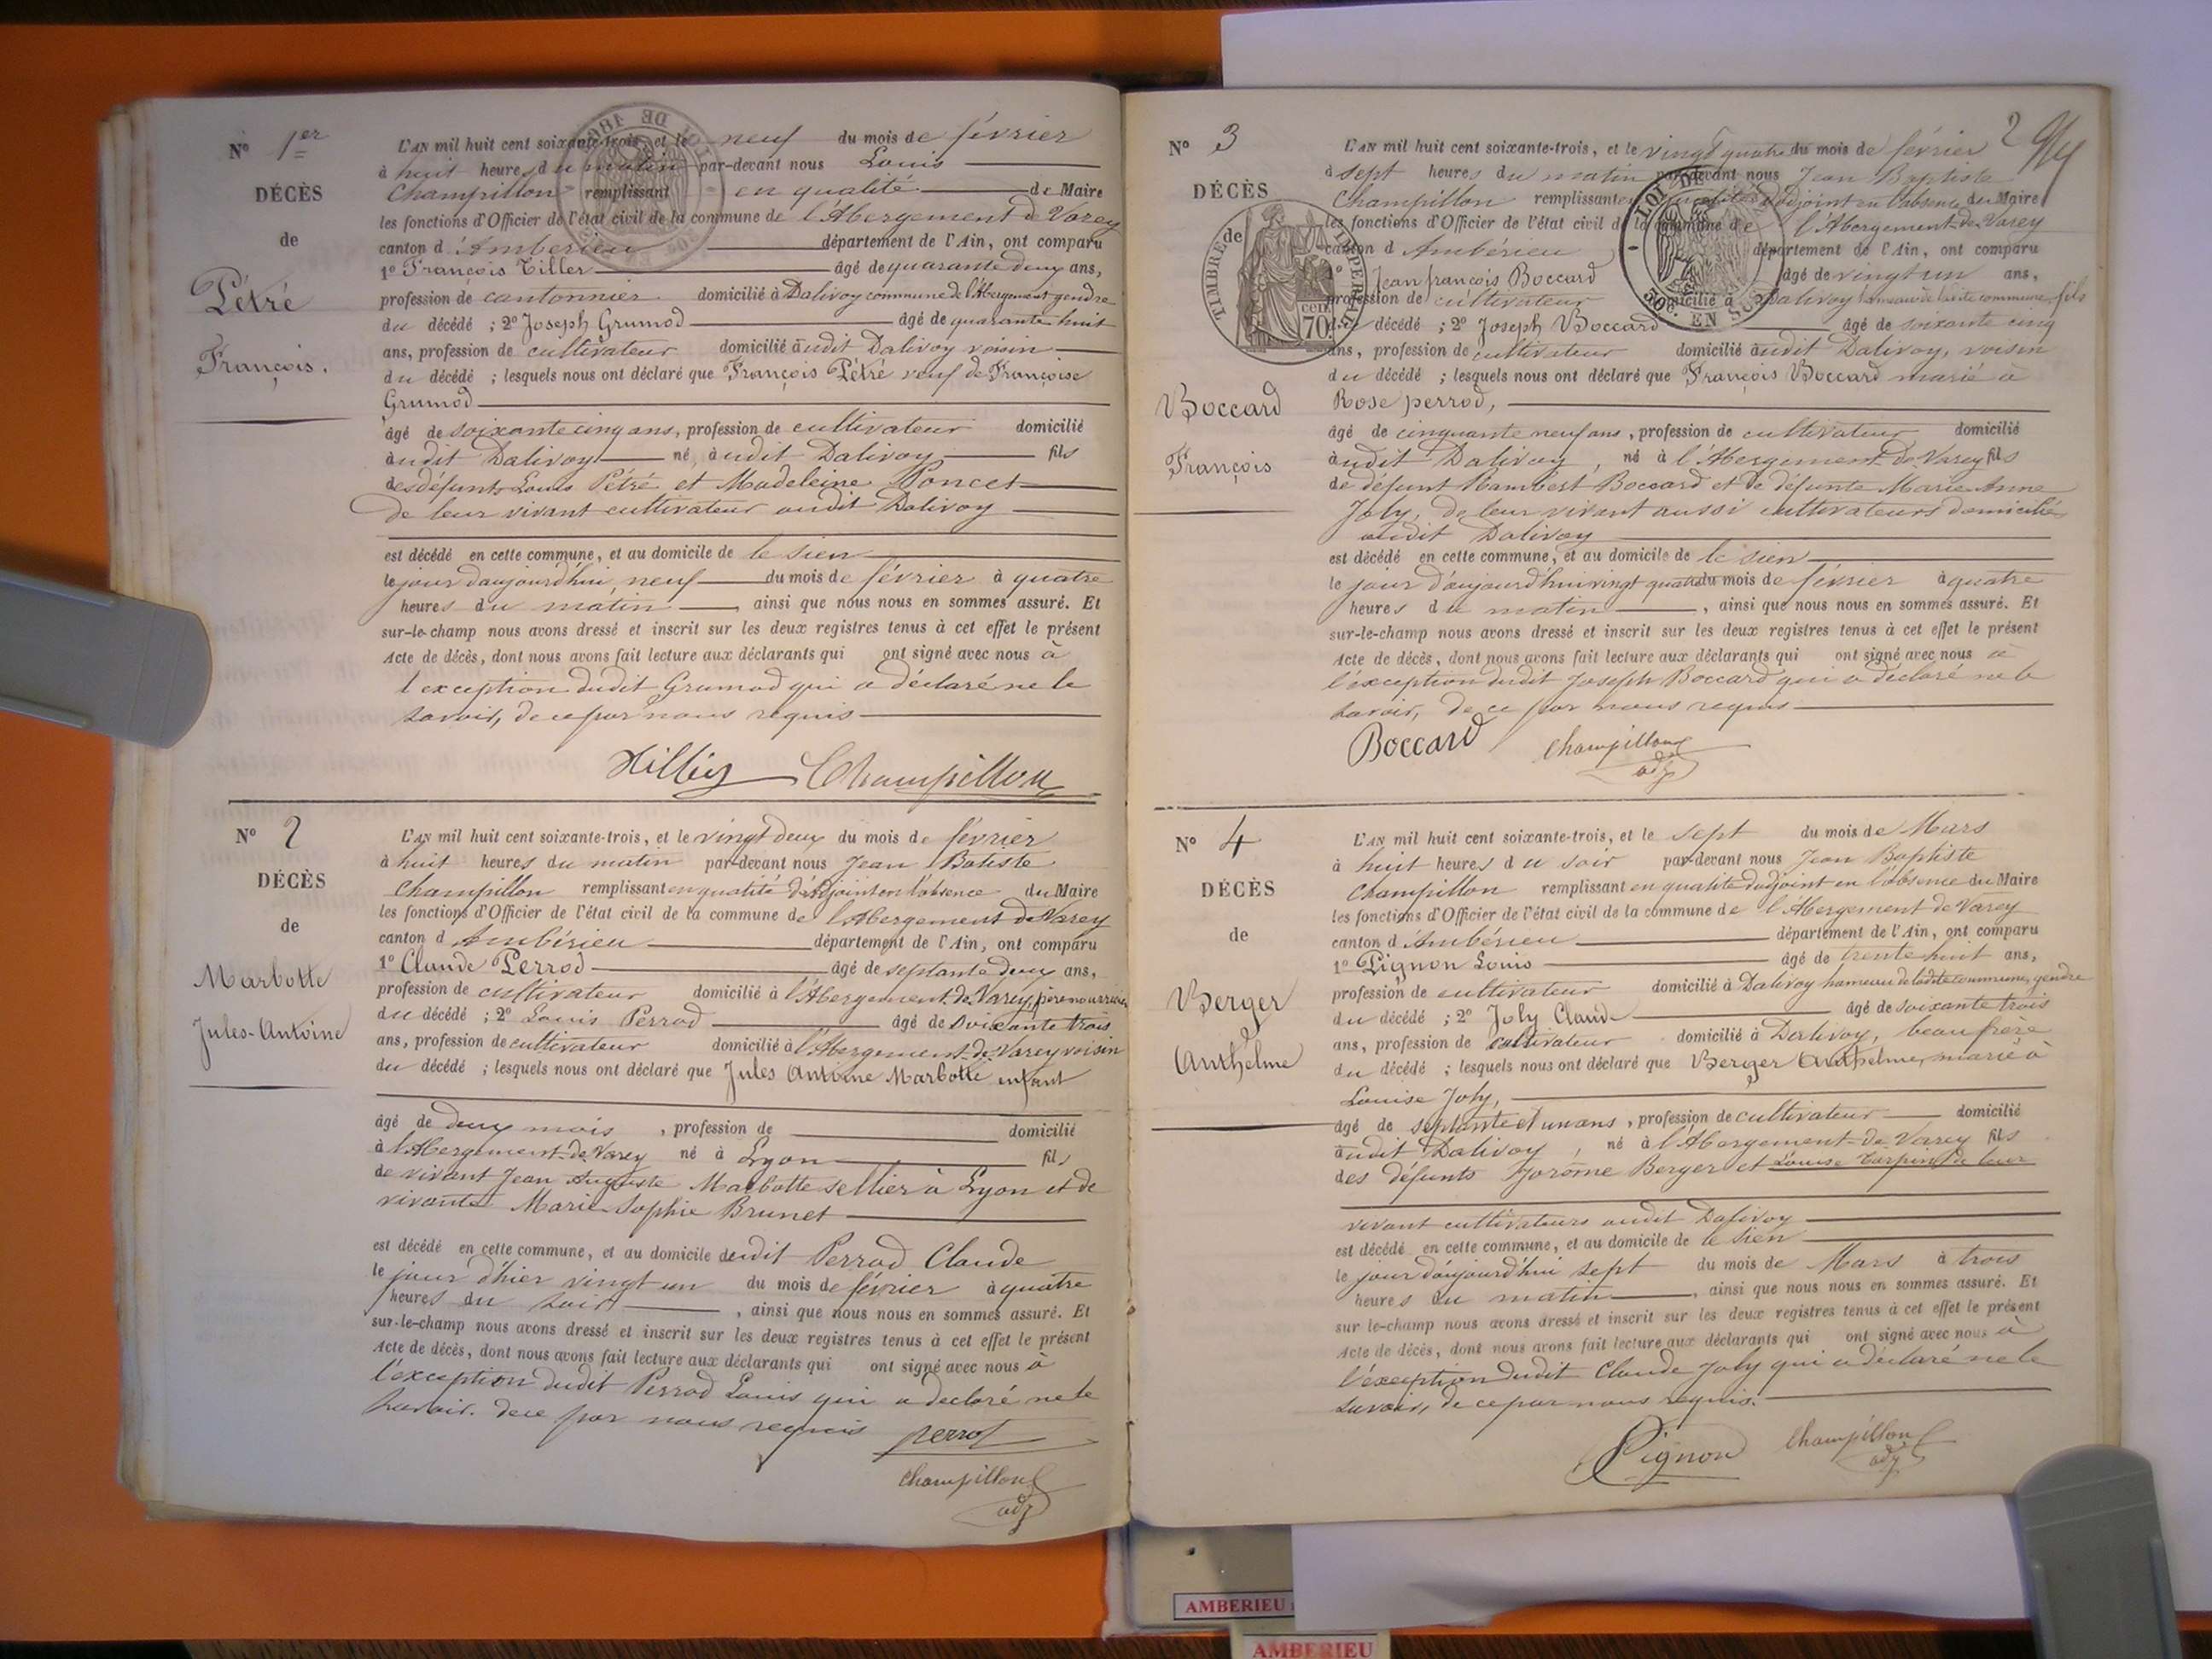 N° 1er
DÉCÈS
de
Pétré
François.
L'AN mil huit cent soixante-trois, et le neuf du mois de février
à huit heures du matin par-devant nous Louis
Champillon remplissant en qualité de Maire
les fonctions d'Officier de l'état civil de la commune de l'Abergement de Varey
canton d'Ambérieu département de l'Ain, ont comparu
1° François Tiller âgé de quarante deux ans,
profession de cantonnier domicilié à Dalivoy commune de l'Abergement gendre
du décédé ; 2° Joseph Grumod âgé de quarante huit
ans, profession de cultivateur domicilié audit Dalivoy voisin
du décédé ; lesquels nous ont déclaré que François Pétré veuf de Françoise
Grumod
âgé de soixante cinq ans, profession de cultivateur domicilié
audit Dalivoy né, audit Dalivoy fils
des défunts Louis Pétré et Madeleine Poncet
de leur vivant cultivateur audit Dalivoy
est décédé en cette commune, et au domicile de le sien
le jour d'aujourd'hui neuf du mois de février à quatre
heures du matin, ainsi que nous nous en sommes assuré. Et
sur-le-champ nous avons dressé et inscrit sur les deux registres tenus à cet effet le présent
Acte de décès, dont nous avons fait lecture aux déclarants qui ont signé avec nous à
l'exception dudit Grumod qui a déclaré ne le
savoir, de ce par nous requis
Champillon
N° 2
DÉCÈS
de
Marbotte
Jules-Antoine
L'AN mil huit cent soixante-trois, et le vingt deux du mois de février
à huit heures du matin par-devant nous Jean Batiste
Champillon remplissant en qualité d'adjoint en l'absence du Maire
les fonctions d'Officier de l'état civil de la commune de l'Abergement de Varey
canton d'Ambérieu département de l'Ain, ont comparu
1° Claude Perrod âgé de septante deux ans,
profession de cultivateur domicilié à l'Abergement de Varey, père nourricier
du décédé ; 2° Louis Perrod âgé de soixante trois
ans, profession de cultivateur domicilié à l'Abergement-de-Varey voisin
du décédé ; lesquels nous ont déclaré que Jules Antoine Marbotte enfant
âgé de deux mois, profession de domicilié
à l'Abergement-de-Varey né à Lyon fils
de vivant Jean Auguste Marbotte sellier à Lyon et de
vivante Marie Sophie Brunet
est décédé en cette commune, et au domicile dudit Perrod Claude
le jour d'hier vingt un du mois de février à quatre
heures du soir, ainsi que nous nous en sommes assuré. Et
sur-le-champ nous avons dressé et inscrit sur les deux registres tenus à cet effet le présent
Acte de décès, dont nous avons fait lecture aux déclarants qui ont signé avec nous à
l'exception dudit Perrod Louis qui a déclaré ne le
savoir. de ce par nous requis
perrod
Champillon
adj
2
N° 3
DÉCÈS
de
TIMBRE IMPERIAL
70 cen
LOI DE
50c. EN SUS
Boccard
François
L'AN mil huit cent soixante-trois, et le vingt quatre du mois de février
à sept heures du matin par-devant nous Jean Baptiste
Champillon remplissant en qualité d'adjoint en l'absence du Maire
les fonctions d'Officier de l'état civil de la commune de l'Abergement-de-Varey
canton d'Ambérieu département de l'Ain, ont comparu
1° Jean françois Boccard âgé de vingt un ans,
profession de cultivateur domicilié à Dalivoy hameau de ladite commune, fils
du décédé ; 2° Joseph Boccard âgé de soixante cinq
ans, profession de cultivateur domicilié audit Dalivoy, voisin
du décédé ; lesquels nous ont déclaré que François Boccard marié à
Rose perrod,
âgé de cinquante neuf ans, profession de cultivateur domicilié
audit Dalivoy, né à l'Abergement-de-Varey fils
de défunt Rambert Boccard et de défunte Marie-Anne
Joly, de leur vivant aussi cultivateurs domiciliés
audit Dalivoy
est décédé en cette commune, et au domicile de le sien
le jour d'aujourd'hui vingt quatre du mois de février à quatre
heures du matin, ainsi que nous nous en sommes assuré. Et
sur-le-champ nous avons dressé et inscrit sur les deux registres tenus à cet effet le présent
Acte de décès, dont nous avons fait lecture aux déclarants qui ont signé avec nous à
l'exception dudit Joseph Boccard qui a déclaré ne le
savoir, de ce par nous requis
Boccard Champillon
adj
N° 4
DÉCÈS
de
Berger
Anthelme
L'AN mil huit cent soixante-trois, et le sept du mois de Mars
à huit heures du soir par-devant nous Jean Baptiste
Champillon remplissant en qualité d'adjoint en l'absence du Maire
les fonctions d'Officier de l'état civil de la commune de l'Abergement de Varey
canton d'Ambérieu département de l'Ain, ont comparu
1° Pignon Louis âgé de trente huit ans,
profession de cultivateur domicilié à Dalivoy hameau de ladite commune, gendre
du décédé ; 2° Joly Claude âgé de soixante trois
ans, profession de cultivateur domicilié à Dalivoy, beau frère
du décédé ; lesquels nous ont déclaré que Berger Anthelme, marié à
Louise Joly,
âgé de septante et un ans, profession de cultivateur domicilié
audit Dalivoy, né à l'Abergement-de-Varey fils
des défunts Jérôme Berger et Louise Tarpin de leur
vivant cultivateurs audit Dalivoy
est décédé en cette commune, et au domicile de le sien
le jour d'aujourd'hui sept du mois de Mars à trois
heures du matin, ainsi que nous nous en sommes assuré. Et
sur le-champ nous avons dressé et inscrit sur les deux registres tenus à cet effet le présent
Acte de décès, dont nous avons fait lecture aux déclarants qui ont signé avec nous à
l'exception dudit Claude Joly qui a déclaré ne le
savoir, de ce par nous requis.
Pignon Champillon
adj
AMBERIEU
AMBERIEU